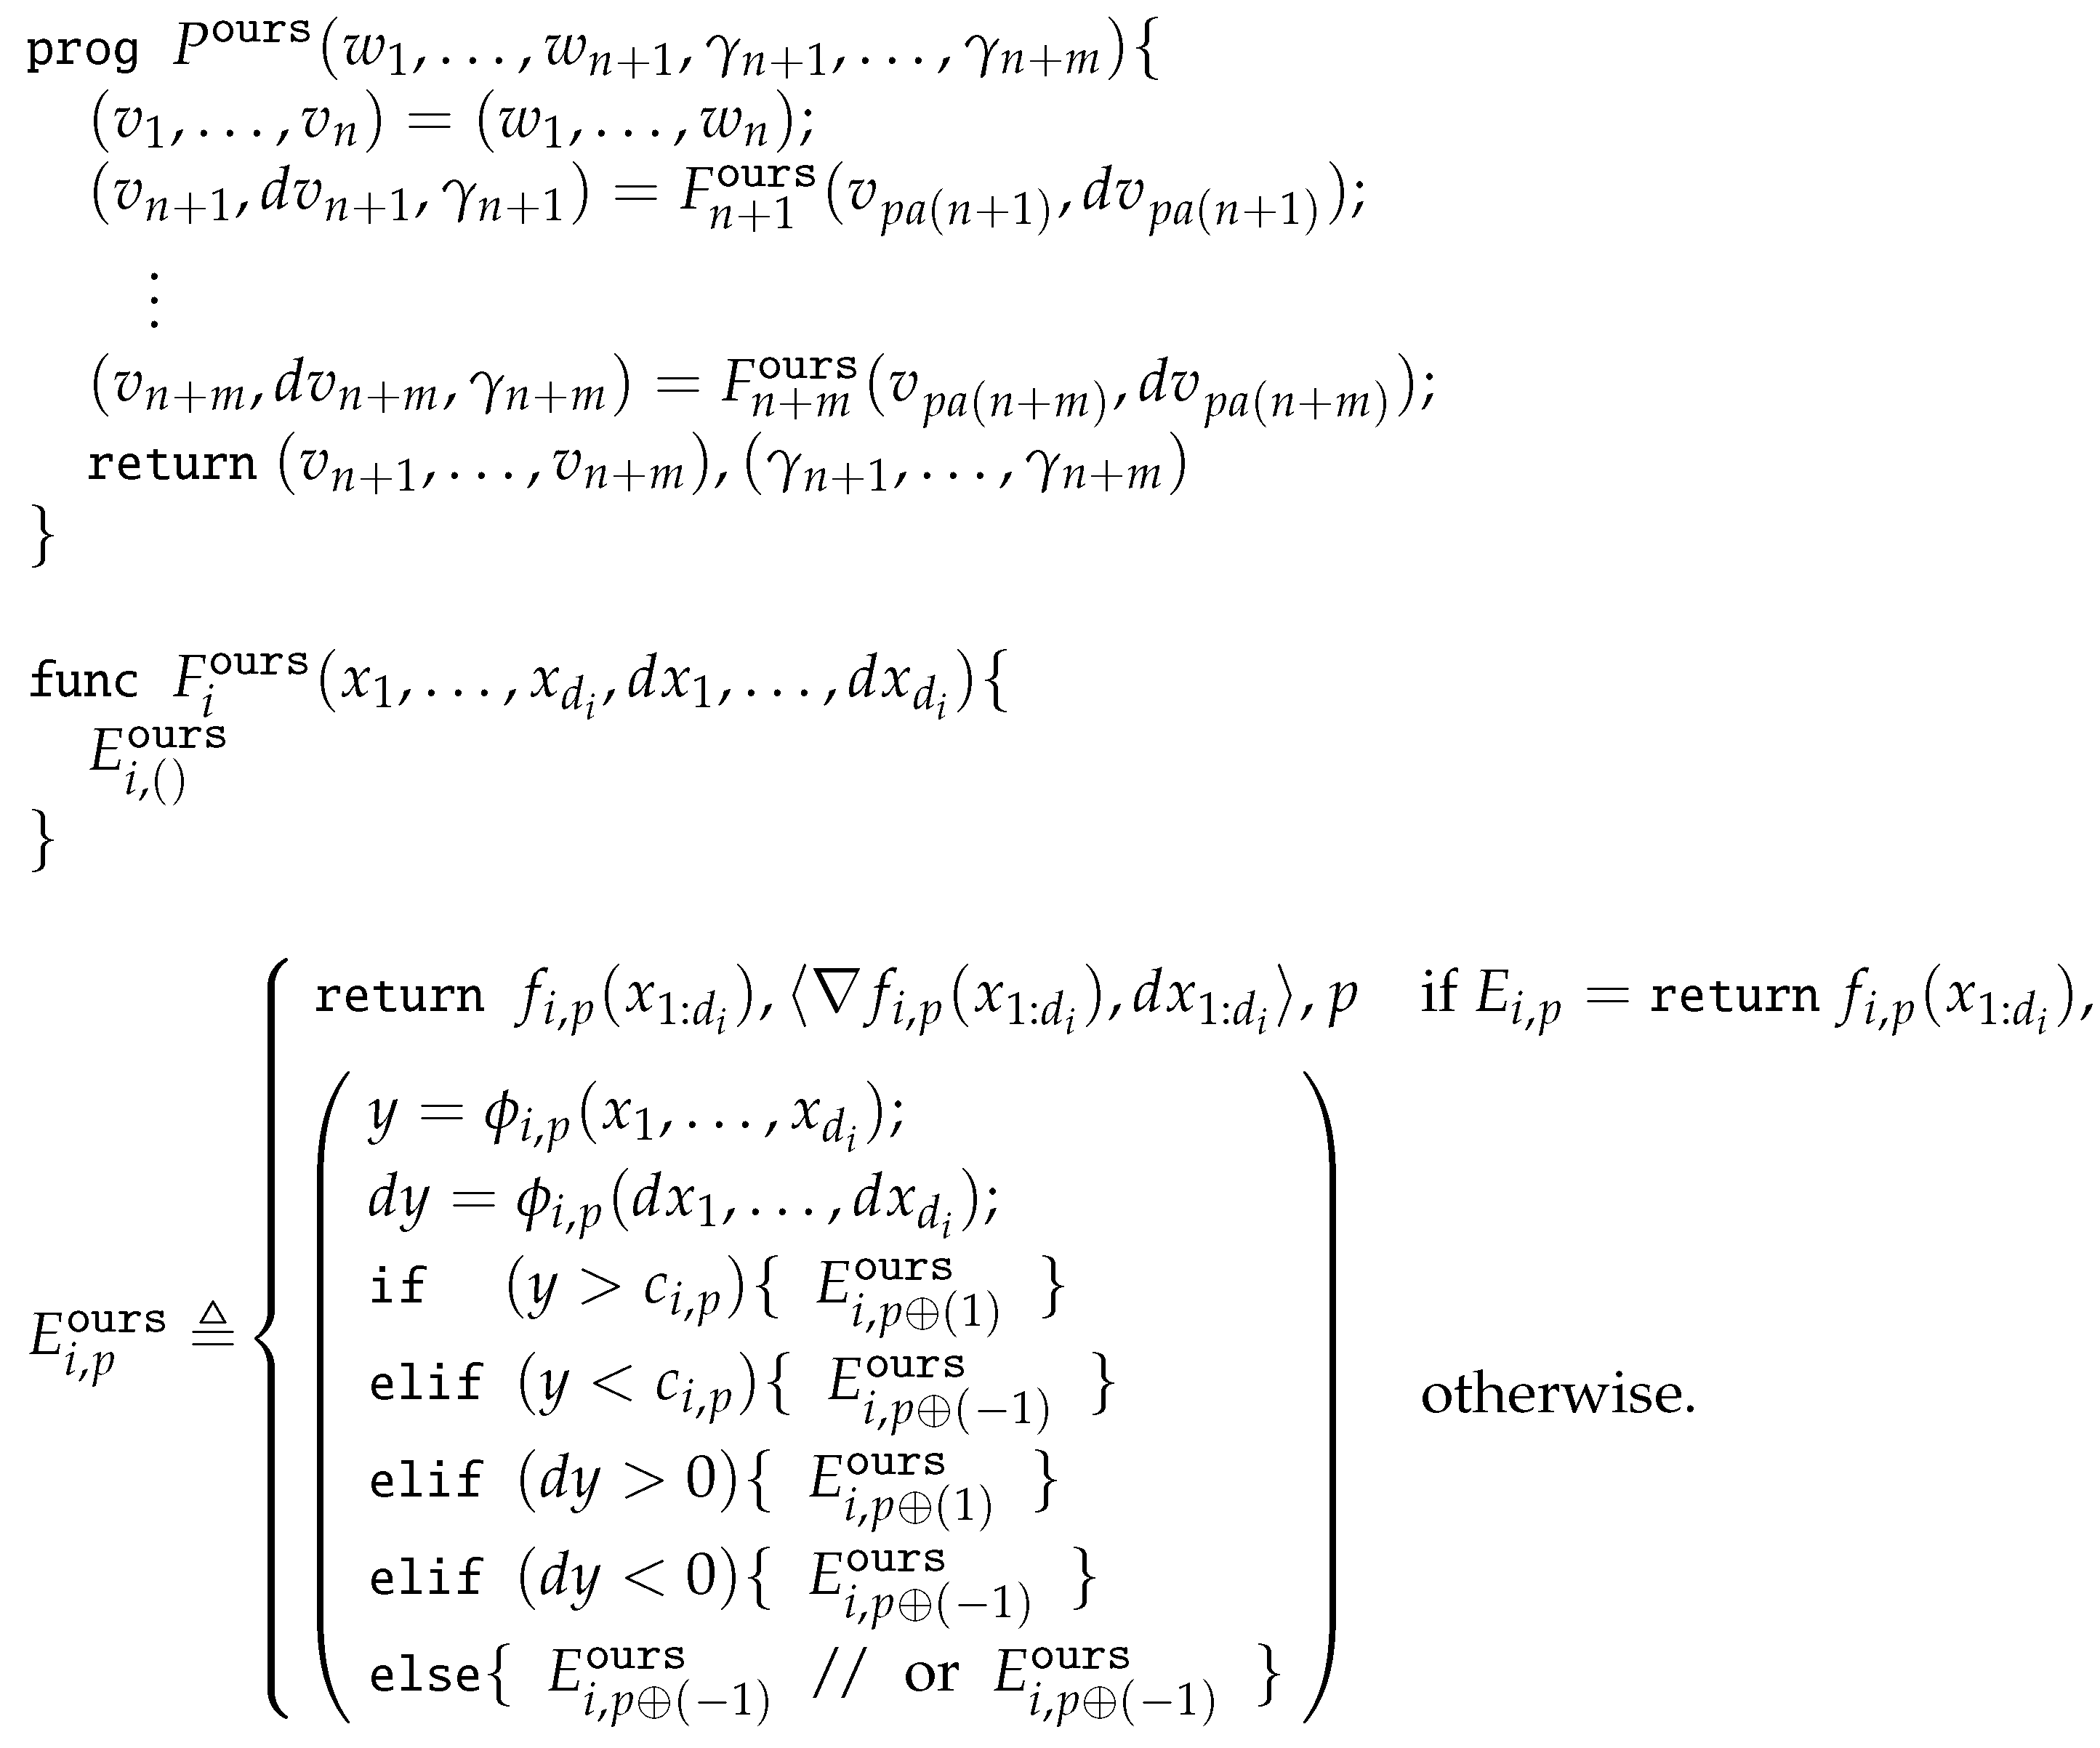 prog P^ours(w_1, ..., w_{n+1}, γ_{n+1}, ..., γ_{n+m}){
(v_1, ..., v_n) = (w_1, ..., w_n);
(v_{n+1}, dv_{n+1}, γ_{n+1}) = F^ours_{n+1}(v_{pa(n+1)}, dv_{pa(n+1)});
⋮
(v_{n+m}, dv_{n+m}, γ_{n+m}) = F^ours_{n+m}(v_{pa(n+m)}, dv_{pa(n+m)});
return (v_{n+1}, ..., v_{n+m}), (γ_{n+1}, ..., γ_{n+m})
}
func F^ours_i(x_1, ..., x_{d_i}, dx_1, ..., dx_{d_i}){
E^ours_{i,()}
}
return f_{i,p}(x_{1:d_i}), ⟨∇f_{i,p}(x_{1:d_i}), dx_{1:d_i}⟩, p if E_{i,p} = return f_{i,p}(x_{1:d_i}),
y = ϕ_{i,p}(x_1, ..., x_{d_i});
dy = ϕ_{i,p}(dx_1, ..., dx_{d_i});
if (y > c_{i,p}){ E^ours_{i,p⊕(1)} }
E^ours_{i,p} ≜
elif (y < c_{i,p}){ E^ours_{i,p⊕(−1)} } otherwise.
elif (dy > 0){ E^ours_{i,p⊕(1)} }
elif (dy < 0){ E^ours_{i,p⊕(−1)} }
else{ E^ours_{i,p⊕(−1)} // or E^ours_{i,p⊕(−1)} }